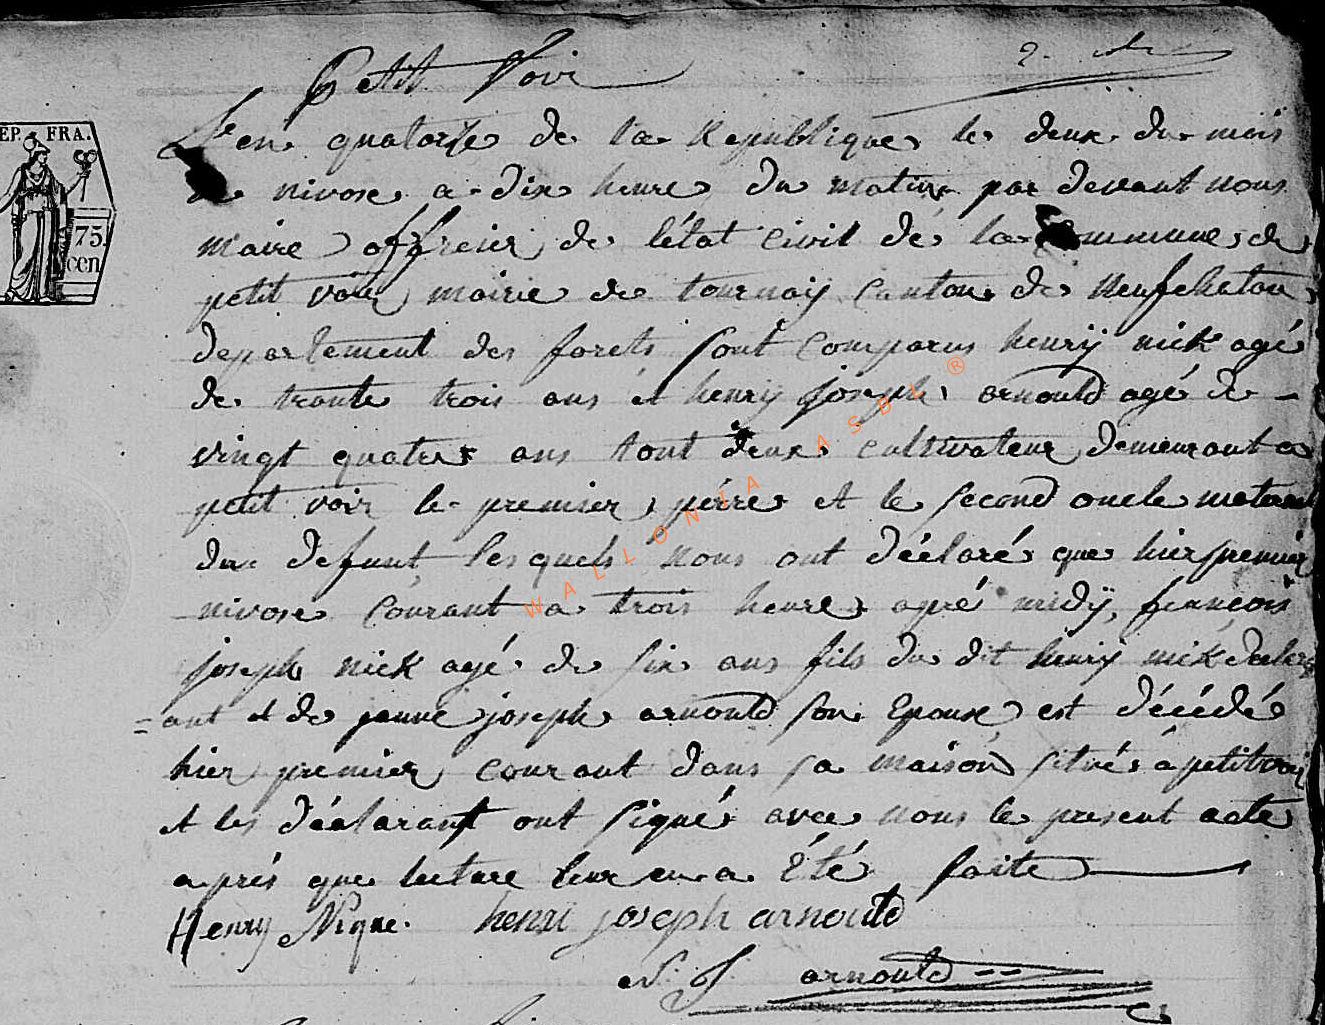 Petit Voir
L'en quatorze de la Republique le deux du mois
de nivose a dix heure du matin par devant nous
maire officier de létat civil de la commune de
petit voir mairie de tournaÿ canton de Neufchatau
departement des forets sont comparus henrÿ nick agé
de trante trois ans et henrÿ joseph arnould agé de
vingt quatre ans tout deux cultivateur demeurant a
petit voir le premier pérre et le second oncle maternel
du defunt lesquels nous ont déclaré que hier premier
nivose courant a trois heure apré midÿ, françois
joseph nick agé de six ans fils du dit henrÿ nick declar
=ant et de jeanne joseph arnould son Epouse est décédé
hier premier courant dans sa maison situé a petit voir
et les déclarant ont signé avec nous le present acte
aprés que lecture leur en a été faite
Henry Nique. henri joseph arnould
N. J. arnould
REP. FRA.
75
cen
WALLONIA ASBL ®